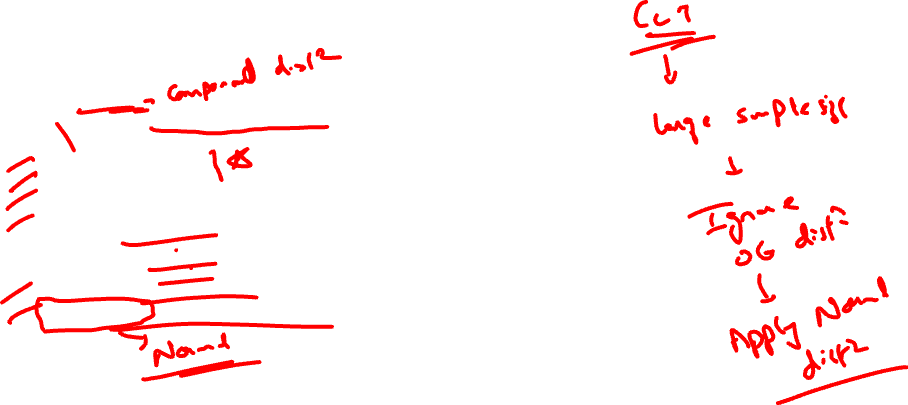 Compound distⁿ
1 *
Normal
CLT
large sample size
Ignore
OG distⁿ
Apply Normal
distⁿ